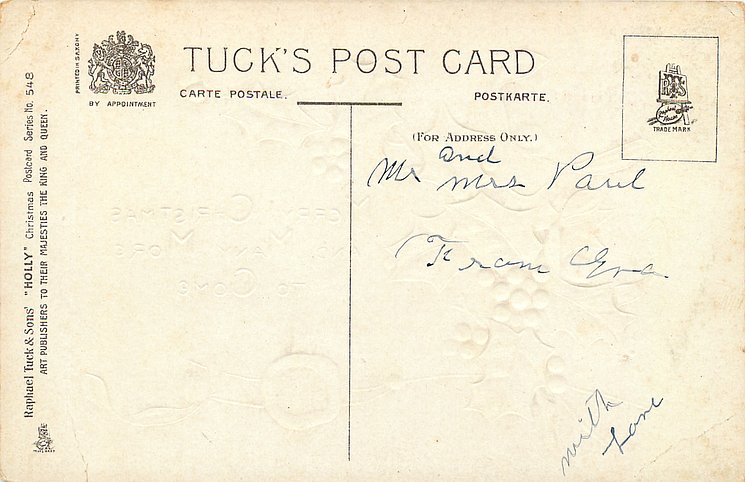 TUCK'S POST CARD
CARTE POSTALE.
POSTKARTE.
BY APPOINTMENT
PRINTED IN SAXONY
(FOR ADDRESS ONLY.)
TRADE MARK
Raphael Tuck & Sons' "HOLLY" Christmas Postcard Series No. 548
ART PUBLISHERS TO THEIR MAJESTIES THE KING AND QUEEN.
and
Mr Mrs Paul
From Eva.
with
love